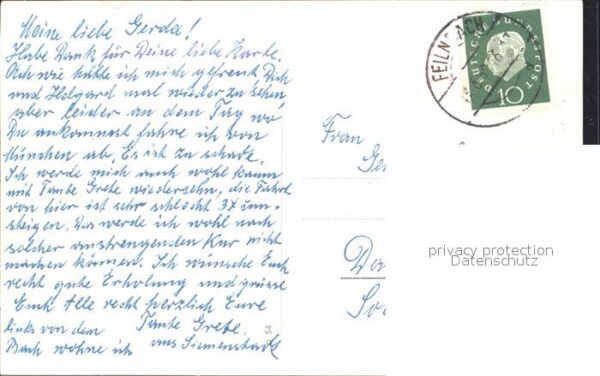 Meine liebe Gerda!
Habe Dank für Deine liebe Karte.
Ach wie hätte ich mich gefreut Dich
und Helgard mal wieder zu sehen
aber leider an dem Tag wo
Du ankommst fahre ich von
München ab. Es ist zu schade.
Ich werde mich auch wohl kaum
mit Tante Grete wiedersehn, die Fahrt
von hier ist sehr schlecht 3x um-
steigen. Das werde ich wohl nach
solcher anstrengenden Kur nicht
machen können. Ich wünsche Euch
recht gute Erholung und grüsse
Euch Alle recht herzlich Eure
links von dem Tante Grete.
Bach wohne ich aus Siemensstadt
54
FEILNBACH
DEUTSCHE BUNDESPOST
10
Frau
Ge
Da
So
privacy protection
Datenschutz